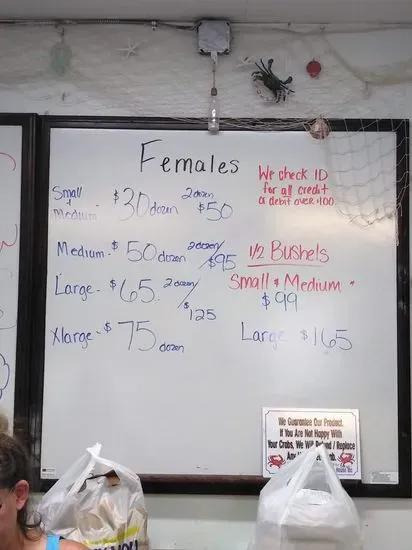 Females
We check ID
for all credit
or debit over $100
Small + Medium - $30 dozen 2 dozen $50
Medium - $50 dozen 2 dozen/$95
Large - $65 2 dozen/$125
Xlarge - $75 dozen
1/2 Bushels
Small & Medium -
$99
Large $165
We Guarantee Our Product.
If You Are Not Happy With
Your Crabs, We Will Refund / Replace
Any
YOU